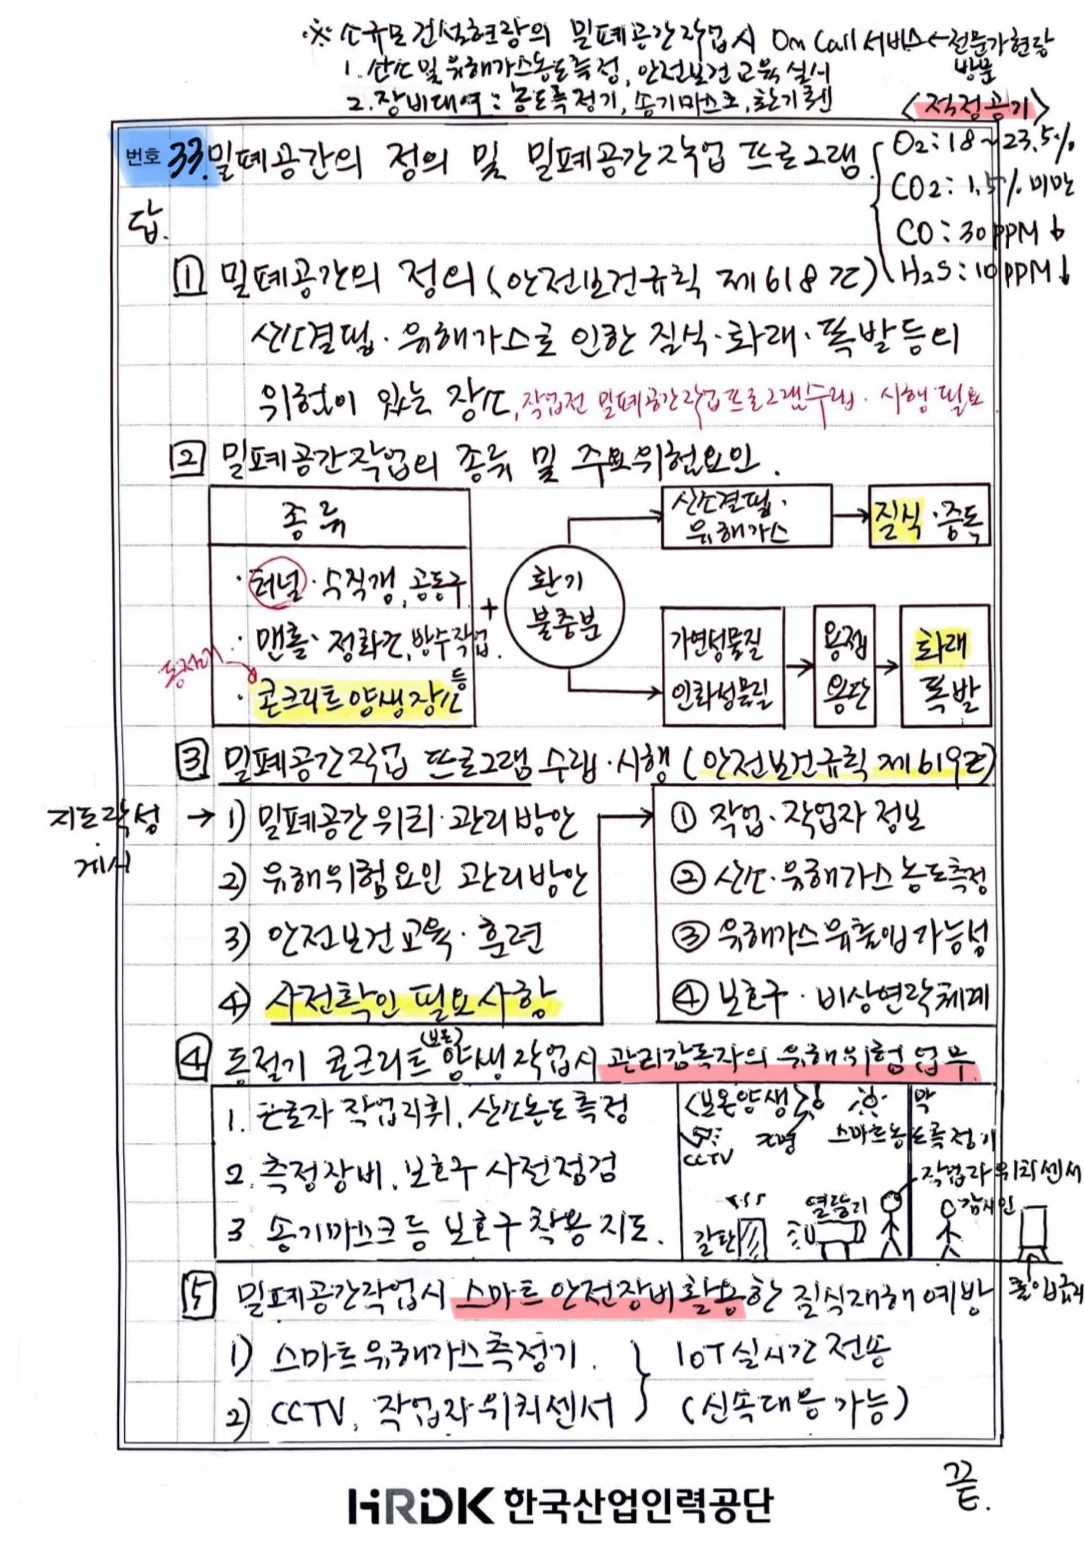 ※ 소규모 건설현장의 밀폐공간작업시 On Call 서비스 ← 전문가현장
방문
1. 산소 및 유해가스농도측정, 안전보건교육 실시
2. 장비대여 : 농도측정기, 송기마스크, 환기팬
<적정공기>
번호 33. 밀폐공간의 정의 및 밀폐공간작업 프로그램.
O2 : 18~23.5%
CO2 : 1.5% 미만
CO : 30PPM↓
H2S : 10PPM↓
답.
1 밀폐공간의 정의 (안전보건규칙 제618조)
산소결핍·유해가스로 인한 질식·화재·폭발등의
위험이 있는 장소, 작업전 밀폐공간작업프로그램수립·시행 필요
2 밀폐공간작업의 종류 및 주요위험요인.
종류
· 터널·수직갱, 공동구
· 맨홀·정화조, 방수작업.
· 콘크리트양생장소 등
동절기
+
환기
불충분
산소결핍·
유해가스
질식·중독
가연성물질
인화성물질
용접
용단
화재
폭발
3 밀폐공간작업 프로그램 수립·시행 (안전보건규칙 제619조)
지도작성 →
게시
1) 밀폐공간 위치·관리방안
2) 유해위험요인 관리방안
3) 안전보건교육·훈련
4) 사전확인 필요사항
① 작업·작업자 정보
② 산소·유해가스 농도측정
③ 유해가스 유출입 가능성
④ 보호구·비상연락체계
4 동절기 콘크리트 (보온)양생작업시 관리감독자의 유해위험업무.
1. 근로자 작업지휘, 산소농도측정
2. 측정장비, 보호구 사전점검
3. 송기마스크 등 보호구 착용 지도.
<보온양생>
막
CCTV
조명
스마트농도측정기
작업자위치센서
감시인
갈탄
열풍기
출입금지
5 밀폐공간작업시 스마트 안전장비활용한 질식재해 예방
1) 스마트유해가스측정기.
2) CCTV, 작업자위치센서
IoT 실시간 전송
(신속대응가능)
끝.
HRDK 한국산업인력공단